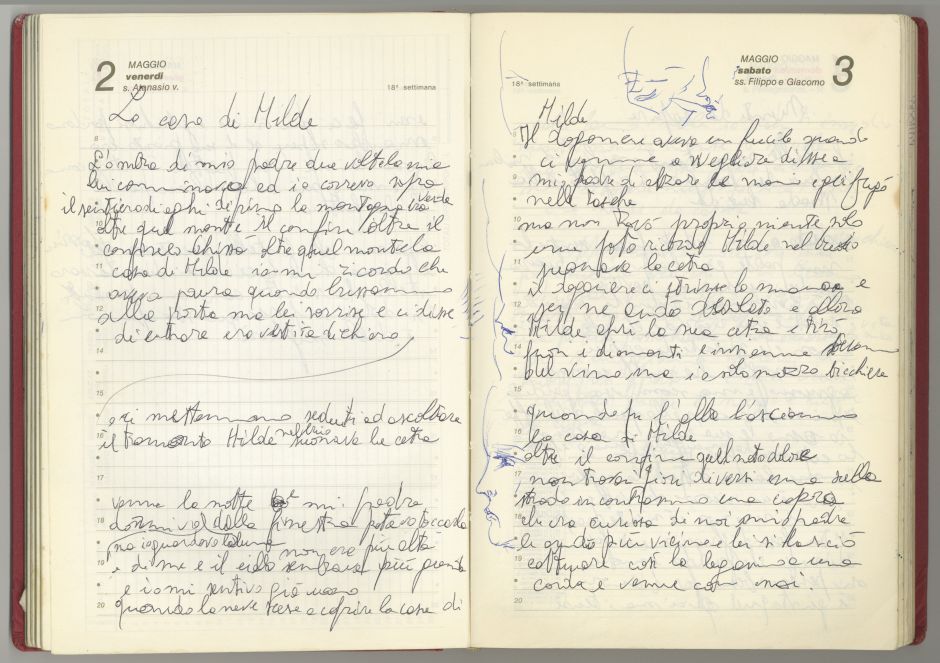 2 MAGGIO
venerdì
s. Atanasio v.
18ª settimana
La casa di Hilde
L'ombra di mio padre due volte la mia
lui camminava ed io correvo sopra
il sentiero di aghi di pino la montagna era verde
oltre quel monte il confine oltre il
confine chissà oltre quel monte la
casa di Hilde io mi ricordo che
avevo paura quando bussammo
alla porta ma lei sorrise e ci disse
di entrare era vestita di chiaro
e ci mettemmo seduti ad ascoltare
il tramonto Hilde nel buio suonava la cetra
venne la notte e mio padre
dormiva
ma io guardavo la luna
dalla finestra potevo toccarla
non era più alta
di me e il cielo sembrava più grande
e io mi sentivo già uomo
quando la neve scese a coprire la casa di
MAGGIO 3
sabato
ss. Filippo e Giacomo
18ª settimana
Hilde
Il doganiere aveva un fucile quando
ci venne a svegliare disse a
mio padre di alzare le mani e gli frugò
nelle tasche
ma non trovò proprio niente solo
una foto ricordo Hilde nel buio
suonava la cetra
il doganiere ci strinse la mano e
se ne andò desolato e allora
Hilde aprì la sua cetra e tirò
fuori i diamanti e insieme bevemmo
del vino ma io solo mezzo bicchiere
quando fu l'alba lasciammo
la casa di Hilde
oltre il confine
non trovai fiori diversi ma sulla
strada incontrammo una capra
che era curiosa di noi mio padre
le andò più vicino e lei si lasciò
catturare così la legammo a una
corda e venne con noi.